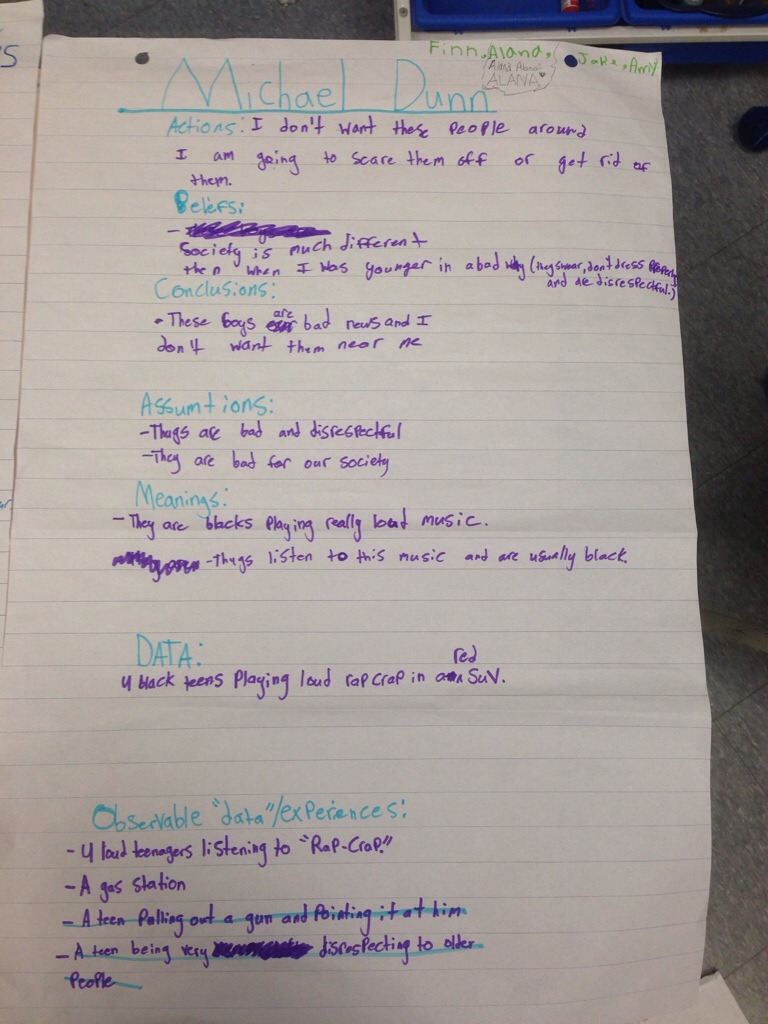 Finn, Alana, Jake, Amy
ALANA
Michael Dunn
Actions: I don't want these people around
I am going to scare them off or get rid of
them.
Beliefs:
-
Society is much different
then when I was younger in a bad way (they swear, don't dress properly
and are disrespectful.)
Conclusions:
• These boys are bad news and I
don't want them near me
Assumtions:
- Thugs are bad and disrespectful
- They are bad for our society
Meanings:
- They are blacks playing really loud music.
- Thugs listen to this music and are usually black.
DATA:
red
4 black teens playing loud rap crap in a SUV.
Observable "data"/experiences:
- 4 loud teenagers listening to "Rap-Crap."
- A gas station
- A teen Palling out a gun and Pointing it at him
- A teen being very disrespecting to older
People